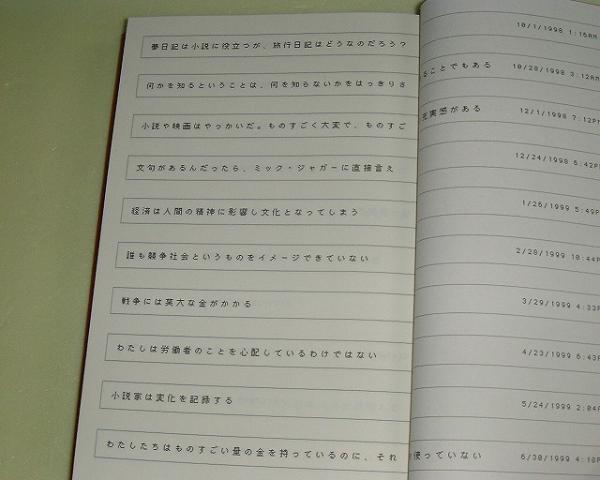 夢日記は小説に役立つが、旅行日記はどうなのだろう? 10/1/1998 1:16AM
何かを知るということは、何を知らないかをはっきりさ ることでもある 10/28/1998 3:12AM
小説や映画はやっかいだ。ものすごく大変で、ものすご 充実感がある 12/1/1998 7:12PM
文句があるんだったら、ミック・ジャガーに直接言え 12/24/1998 5:42P
経済は人間の精神に影響し文化となってしまう 1/26/1999 5:49P
誰も競争社会というものをイメージできていない 2/28/1999 10:44P
戦争には莫大な金がかかる 3/29/1999 4:33P
わたしは労働者のことを心配しているわけではない 4/23/1999 6:43P
小説家は変化を記録する 5/24/1999 2:04P
わたしたちはものすごい量の金を持っているのに、それ 使っていない 6/30/1999 4:10P